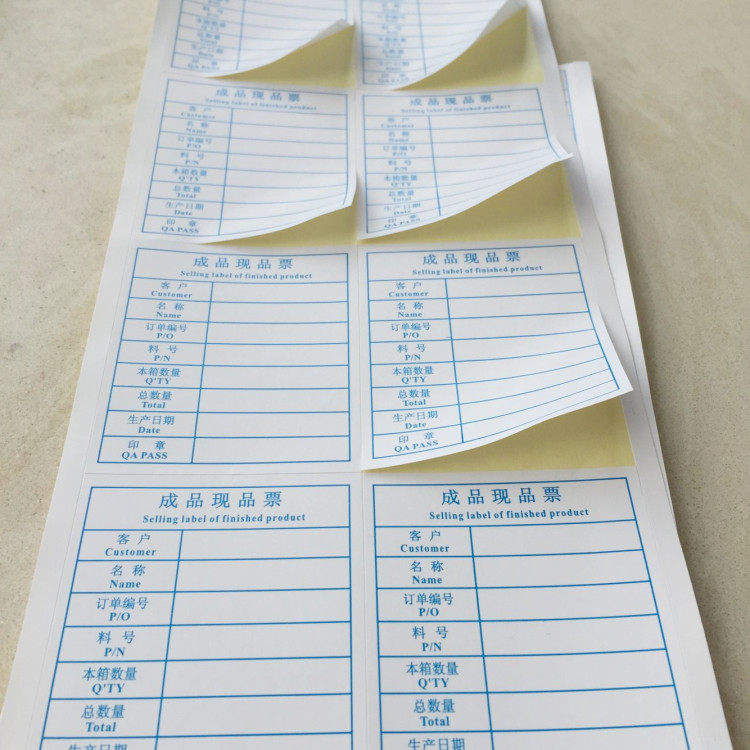 料 号
P/N
本箱数量
Q'TY
总数量
Total
生产日期
Date
印 章
QA PASS
本箱数量
Q'TY
总数量
Total
生产日期
Date
印 章
QA PASS
成品现品票
Selling label of finished product
客 户
Customer
名 称
Name
订单编号
P/O
料 号
P/N
本箱数量
Q'TY
总数量
Total
生产日期
Date
印 章
QA PASS
成品现品票
Selling label of finished product
客 户
Customer
名 称
Name
订单编号
P/O
料 号
P/N
本箱数量
Q'TY
总数量
Total
生产日期
Date
印 章
QA PASS
成品现品票
Selling label of finished product
客 户
Customer
名 称
Name
订单编号
P/O
料 号
P/N
本箱数量
Q'TY
总数量
Total
生产日期
Date
印 章
QA PASS
成品现品票
Selling label of finished product
客 户
Customer
名 称
Name
订单编号
P/O
料 号
P/N
本箱数量
Q'TY
总数量
Total
生产日期
Date
印 章
QA PASS
成品现品票
Selling label of finished product
客 户
Customer
名 称
Name
订单编号
P/O
料 号
P/N
本箱数量
Q'TY
总数量
Total
生产日期
成品现品票
Selling label of finished product
客 户
Customer
名 称
Name
订单编号
P/O
料 号
P/N
本箱数量
Q'TY
总数量
Total
生产日期